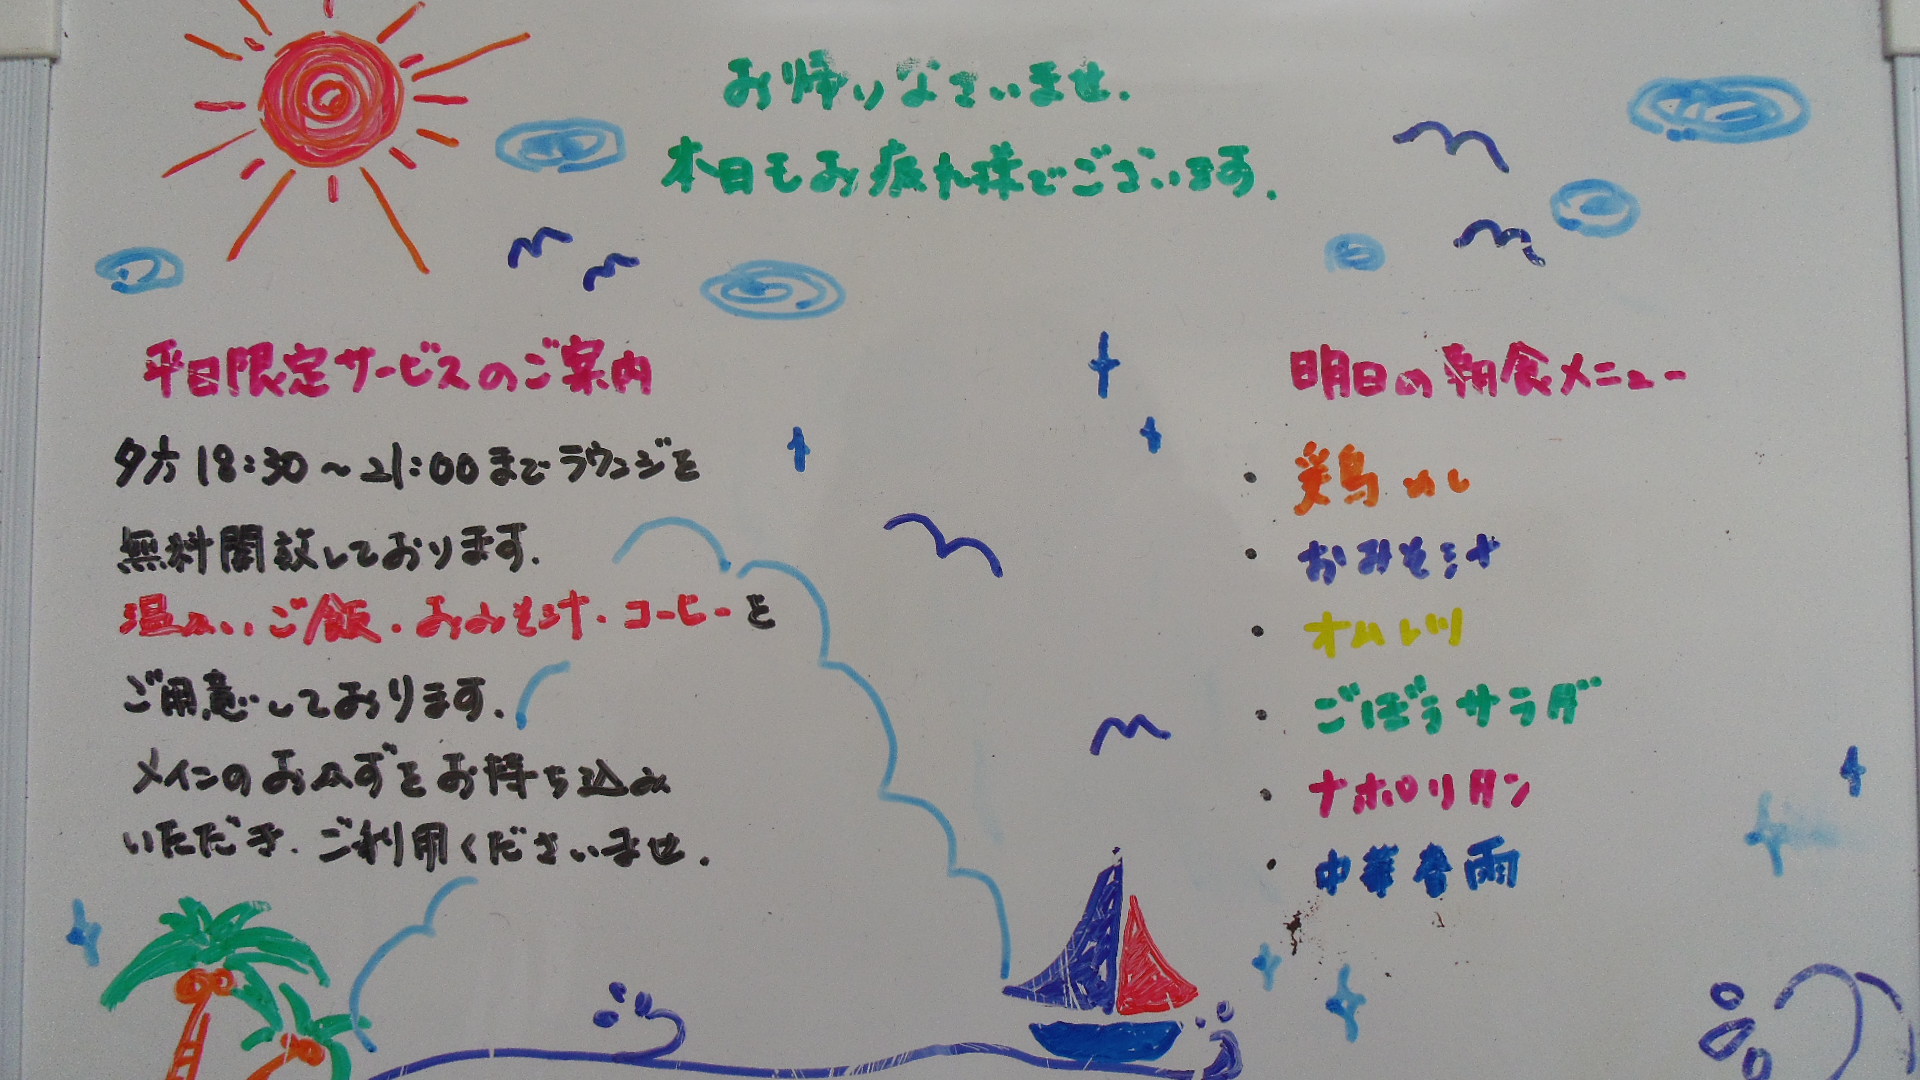 お帰りなさいませ.
本日もお疲れ様でございます.
平日限定サービスのご案内
夕方18:30～21:00までラウンジを
無料開放しております.
温かいご飯・おみそ汁・コーヒーを
ご用意しております.
メインのおかずをお持ち込み
いただき.ご利用くださいませ.
明日の朝食メニュー
・鶏めし
・おみそ汁
・オムレツ
・ごぼうサラダ
・ナポリタン
・中華春雨